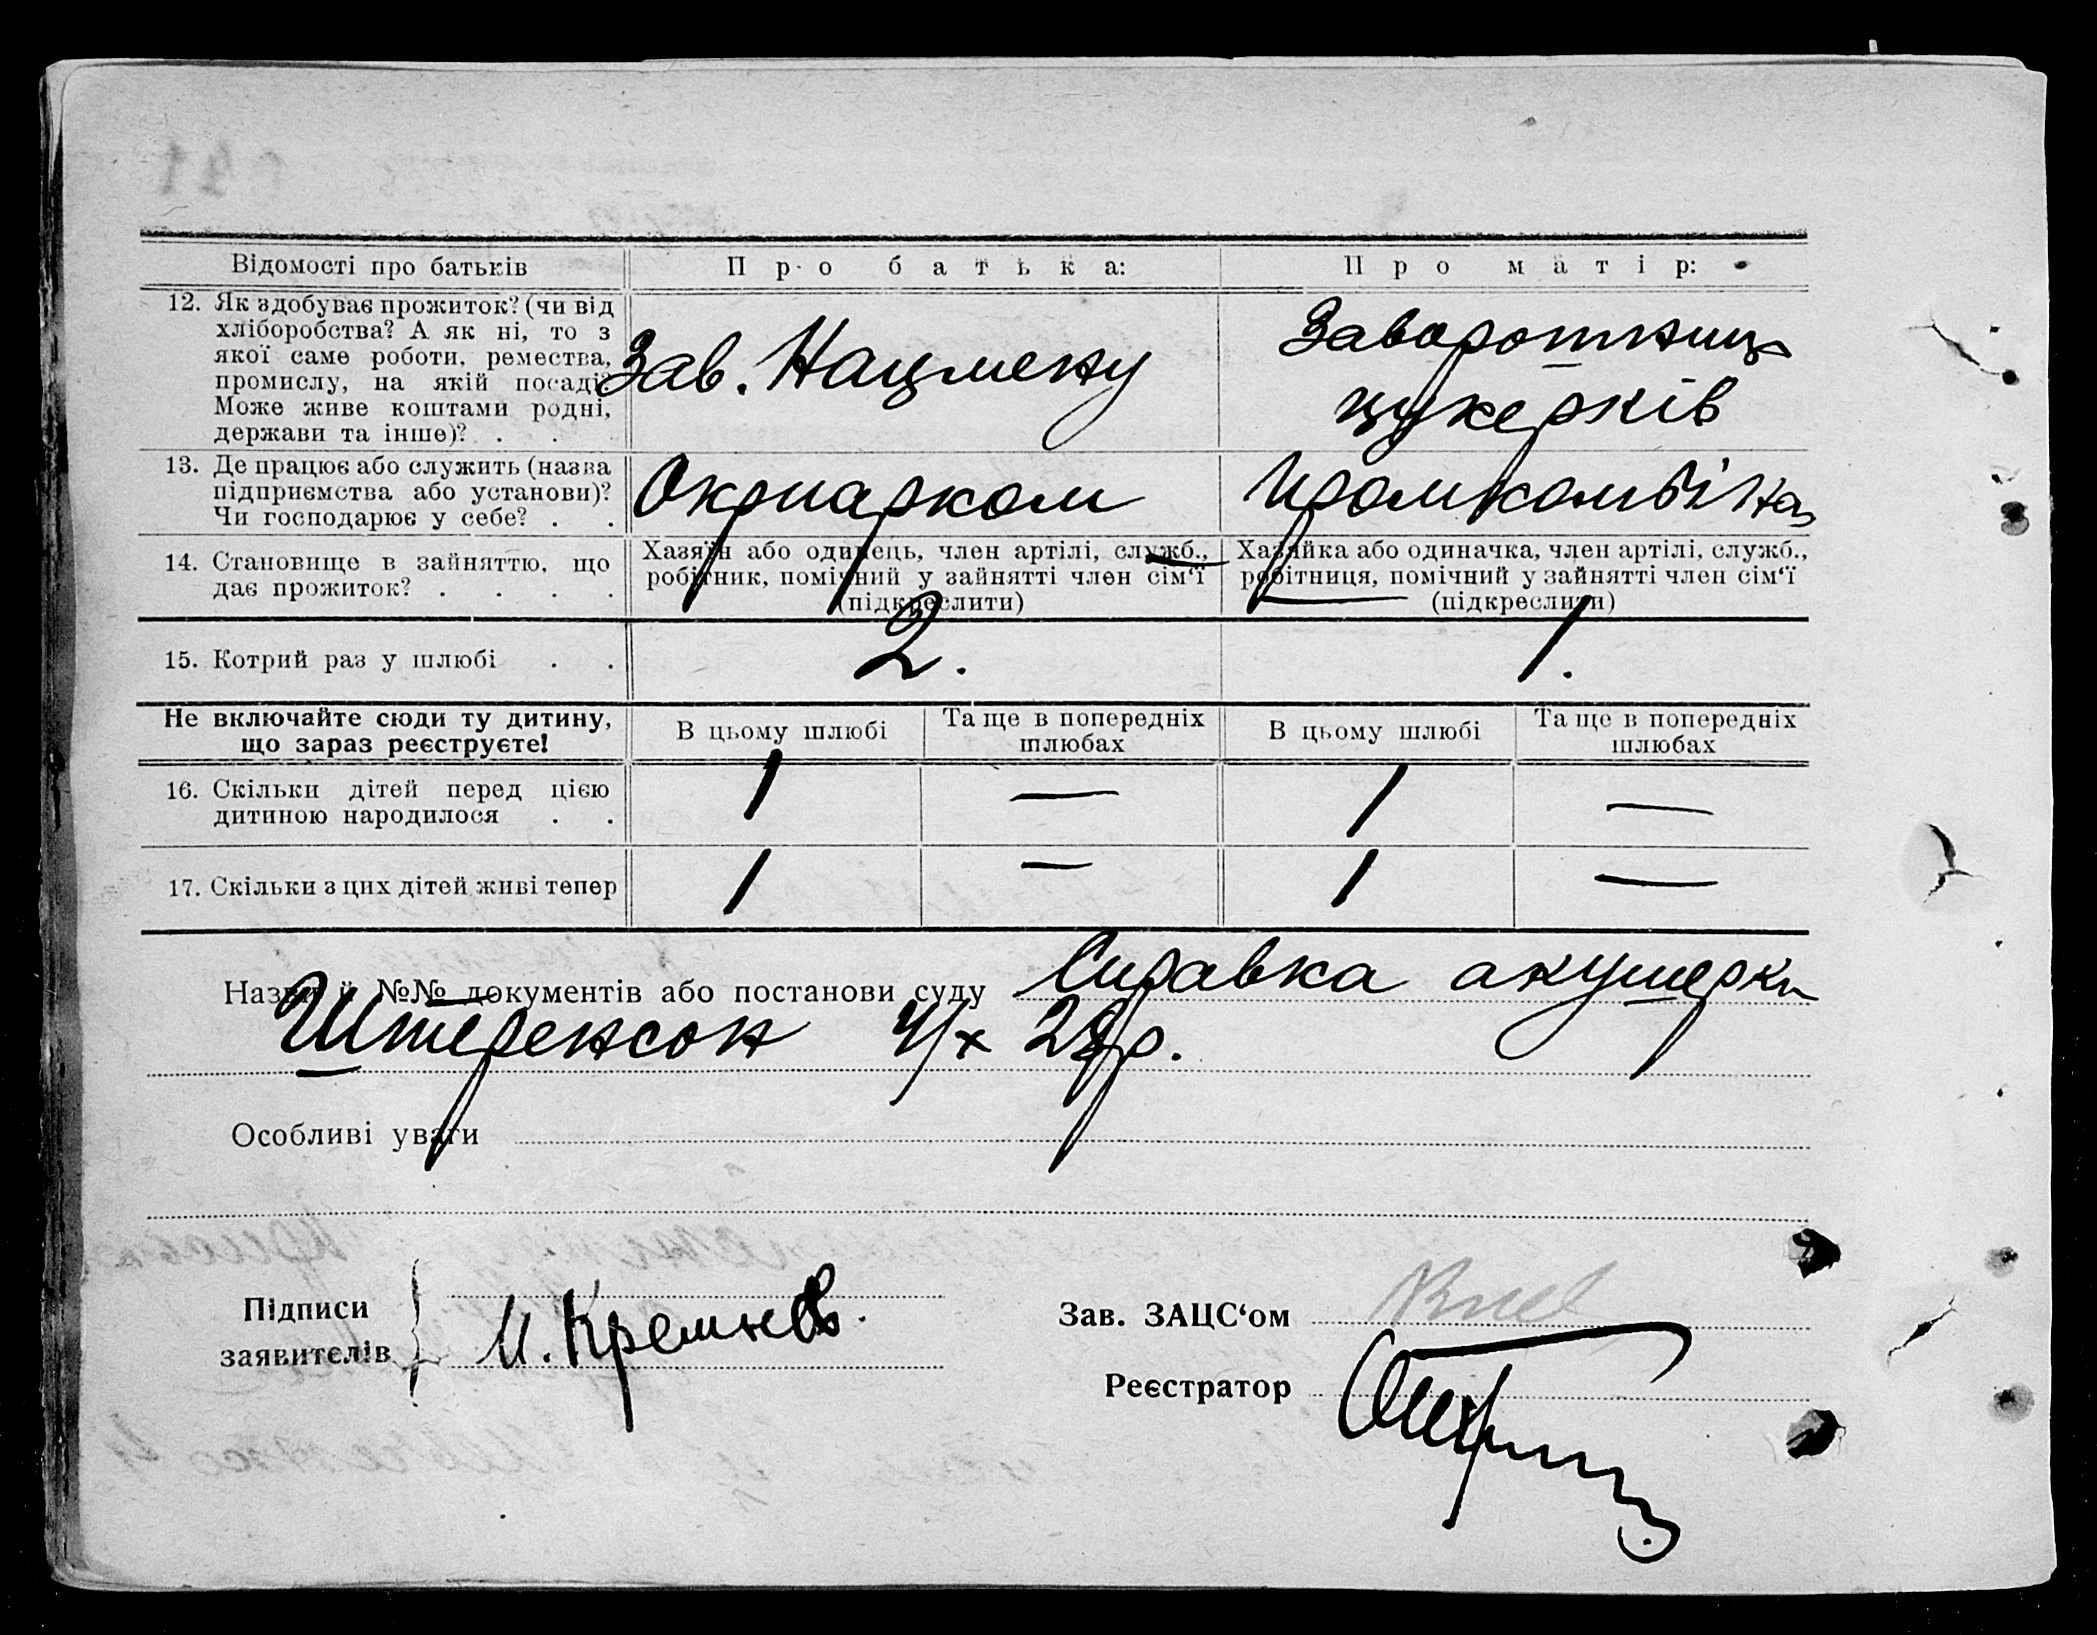 Відомості про батьків
Про батька:
Про матір:
12. Як здобуває прожиток? (чи від
хліборобства? А як ні, то з
якої саме роботи, ремества,
промислу, на якій посаді?
Може живе коштами родні,
держави та інше)? . .
Зав. Нацмену
Заворотниця
цукерків
13. Де працює або служить (назва
підприємства або установи)?
Чи господарює у себе? . .
Окрпарком
Промкомбінат
14. Становище в зайняттю, що
дає прожиток? . . . .
Хазяїн або одинець, член артілі, служб.,
робітник, помічний у зайнятті член сім‘ї
(підкреслити)
Хазяйка або одиначка, член артілі, служб.,
робітниця, помічний у зайнятті член сім‘ї
(підкреслити)
15. Котрий раз у шлюбі . .
2.
1.
Не включайте сюди ту дитину,
що зараз реєструєте!
В цьому шлюбі
Та ще в попередніх
шлюбах
В цьому шлюбі
Та ще в попередніх
шлюбах
16. Скільки дітей перед цією
дитиною народилося . .
1
—
1
—
17. Скільки з цих дітей живі тепер
1
—
1
—
Назви й №№ документів або постанови суду Справка акушерки
Штеренсон 4/х 28р.
Особливі уваги
Підписи
заявителів
И. Кремнев.
Зав. ЗАЦС‘ом
Реєстратор